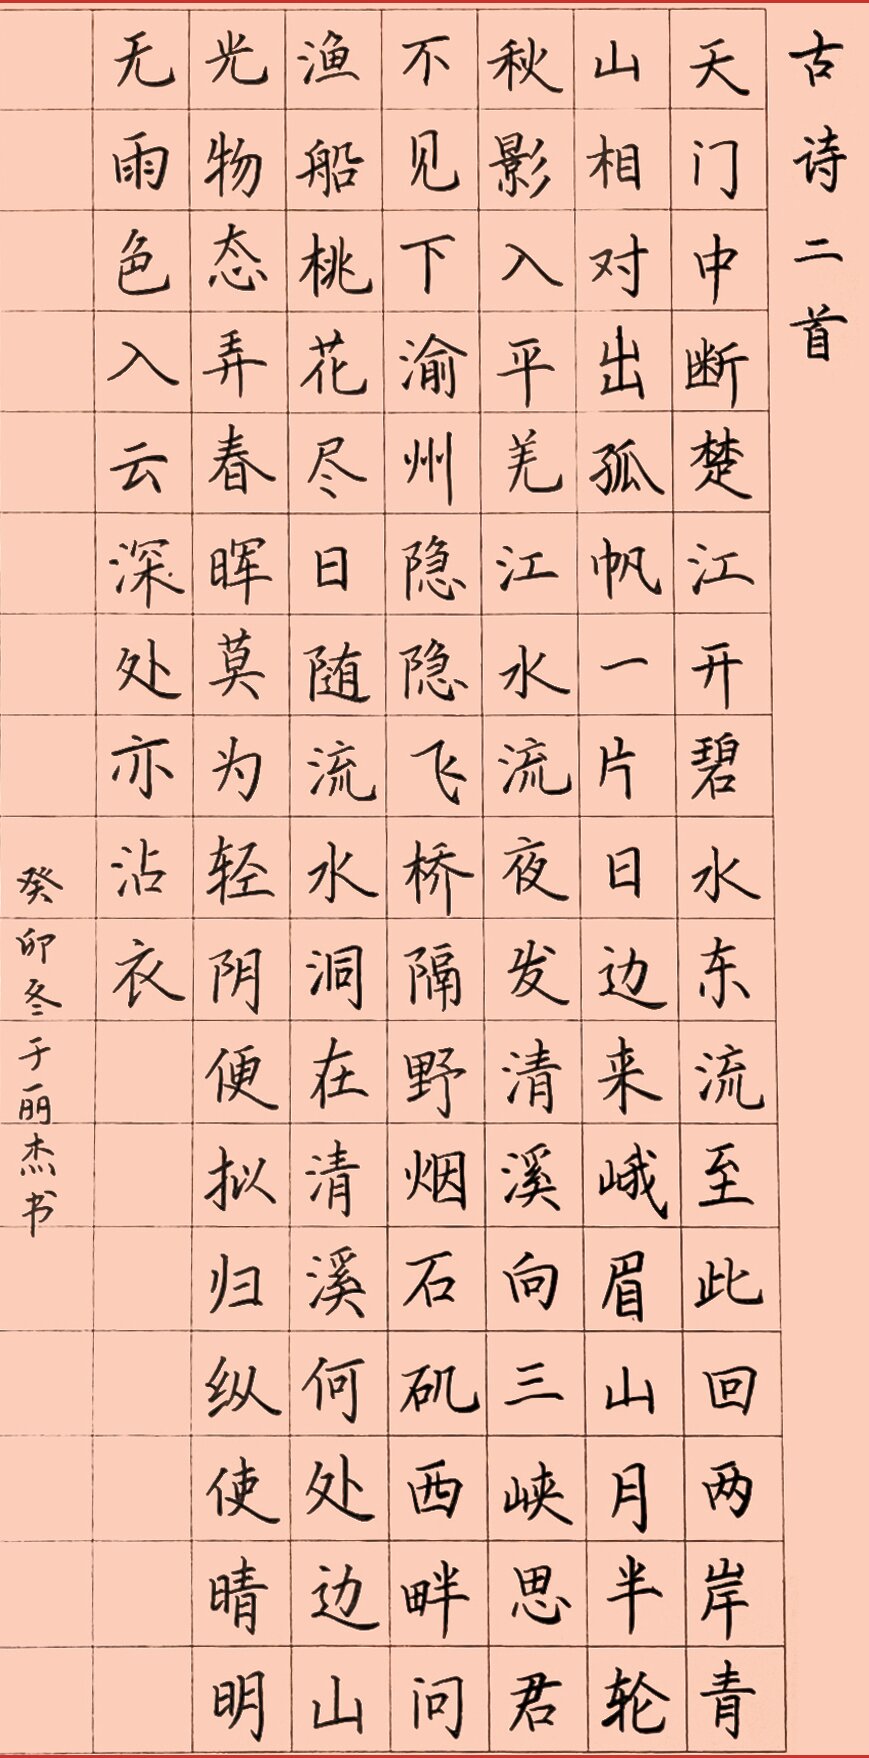 古诗二首
天门中断楚江开碧水东流至此回两岸青
山相对出孤帆一片日边来峨眉山月半轮
秋影入平羌江水流夜发清溪向三峡思君
不见下渝州隐隐飞桥隔野烟石矶西畔问
渔船桃花尽日随流水洞在清溪何处边山
光物态弄春晖莫为轻阴便拟归纵使晴明
无雨色入云深处亦沾衣
癸卯冬于丽杰书